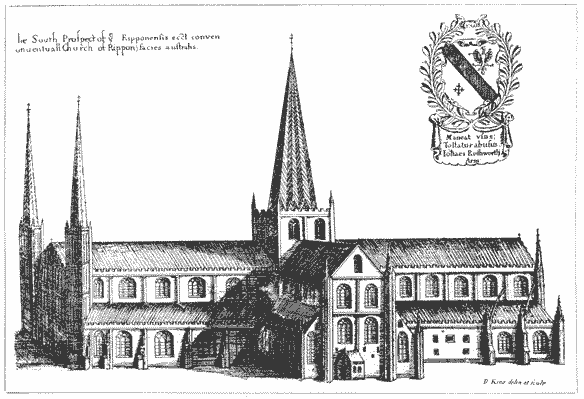 The South Prospect of ye Ripponensis eccl conven
onventuall Church of Rippon; facies australis.
Maneat usus;
Tollatur abusus
Iohaes Rushworth
Arm
D King delin et sculp